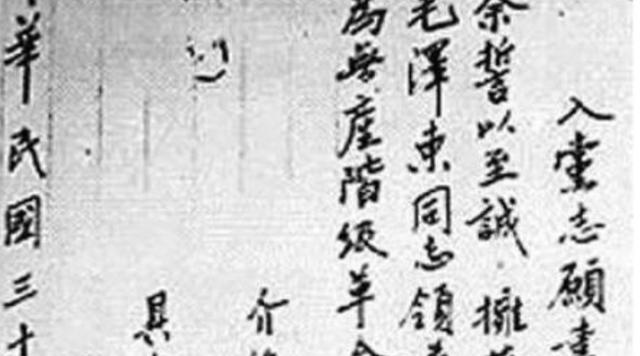 入黨志願書
余誓以至誠，擁
毛澤東同志領
為無產階級革命
介
具
華民國三十